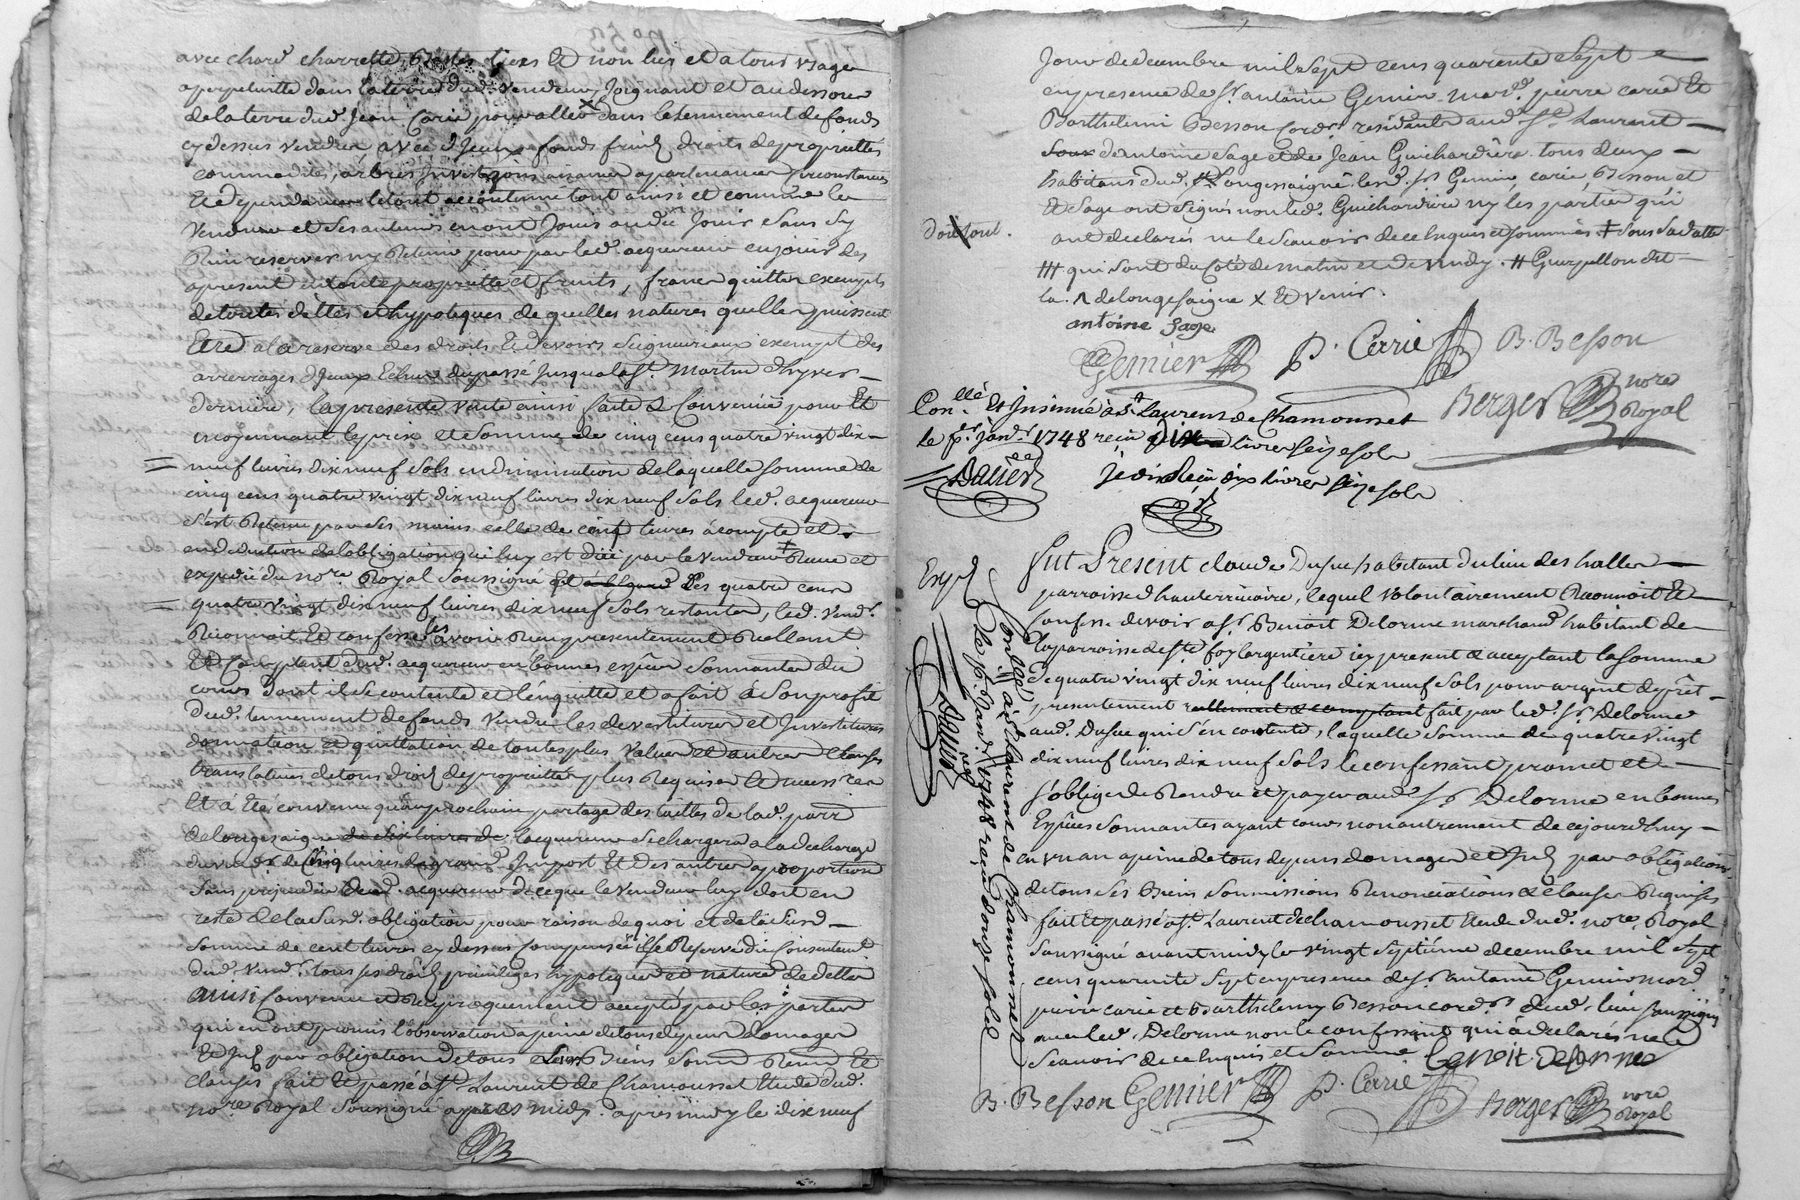 avec chars charrette, Bestes liers Et non liers et a tous usage
a perpetuitte dans la terre dud. vendeur, Joignant et au dessous
de la terre dud. Jean Carie pour aller × dans le tennement de fonds
cy dessus vendu avec d'Jeceux fonds fruits droits de proprietés
commodités, arbres Investizons aisances apartenances circonstances
Et dependances le tout accoutumé tout ainsi et comme le
vendeur et ses auteurs en ont Jouis ou dû Jouir sans sy
Rien reserver ny Retenir pour par led. acquereur en jouir des
apresent en toute proprietté et fruits, francs quittes exempts
de toutes dettes et hypoteques de quelles natures quelles puissent
Etre a la reserve des droits Et devoirs seigneuriaux exempt des
arrerrages d'Jceux Echus du passé Jusqua la St. Martin d'hyver
derniere, la presente vente ainsi faite & Convenüe pour Et
moyennant le prix et somme de cinq cens quatre vingt dix
neuf livres dix neuf sols en diminution de laquelle somme de
cinq cens quatre vingt dix neuf livres dix neuf sols led. acquereur
s'est Retenu par ses mains celle de cent livres à compte et
en deduction de l'obligation qui luy est düe par le vendeur ‡ Reçue et
expediée du nore. Royal soussigné Et a l'Egard des quatre cens
quatre vingt dix neuf livres dix neuf sols restantes, led. vendr.
Reconnoit Et confesse les avoir Reçu presentement Reellemt.
Et Comptant dud. acquereur en bonnes especes sonnantes du
cours dont il se contente et l'en quitte et a fait à son profit
dud. tennement de fonds vendu les devestitures et Investitures
donnation & quittation de toutes plus values et autres clauses
translatives de tous droits de proprietés plus Requises Et necessres.
Et à Eté convenu qu'au prochain partage des tailles de lad. parr.
de longesaigne de dix livres de l'acquereur se chargera a la decharge
du vendr. de Cinq livres de grand Import Et des autres a proportion
sans prejudice dud. acquereur de ce que le vendeur luy doit en
reste de lasusd. obligation pour raison de quoi et de la susd.
somme de cent livres cy dessus compensée il se Reserve du consentemt.
dud. vendr. tous ses droits privileges hypoteques et nature de dettes
ainsi convenu et Reciproquement accepté par les parties
qui en ont promis l'observation a peine de tous depens domages
Et Jnts. par obligation de tous Leurs Biens Soum. Renon. Et
clauses fait Et passé a St. Laurent de Chamousset Etude dud.
nore. Royal soussigné apres midy. apres midy le dix neuf
Jour de decembre mil sept cens quarente sept
en presence de Sr. antoine Gemier mard. pierre carié Et
Barthelemi Besson cordr. residants aud. St. Laurent
sous d'antoine sage et de Jean Guichardiere tous deux
habitans dud. Longesaigne lesd. Srs Gemier, carié, Besson et
Et sage ont signés non led. Guichardiere ny les parties qui
ont declarés ne le scavoir de ce Enquis et sommés ‡ sous sa datte
qui sont du coté de matin et de vendz. # Guepillon dt.
la. de longesaigne × Et venir.
doit tout.
antoine sage
Gemier P. Carrié B. Besson
Berger nore Royal
Conllé. Et Insinué à St. Laurens de Chamousset
le per. janvr. 1748 reçu Dix livres seize sols
Dallier je dis Reçu dix livres seize sols
Fut Present claude Dufue habitant du lieu des halles
parroisse d'hauterivoire, lequel volontairement Reconnoit Et
Confesse devoir a Sr. Benoit Delorme marchand habitant de
la parroisse de Ste. foy l'argentiere icy present & acceptant la somme
de quatre vingt dix neuf livres dix neuf sols pour argent de prêt
presentement reellement & comptant fait par led. Sr. Delorme
aud. Dufue qui s'en contente, laquelle somme de quatre vingt
dix neuf livres dix neuf sols le confessant promet et
s'oblige de Rendre et payer aud. Sr. Delorme en bonnes
Especes sonnantes ayant cours non autrement de ce jourd'huy
en un an a peine de tous depens domages et Jnts. par obligation
de tous ses Biens soumissions Renonciations & clauses Requises
fait Et passé a St. Laurent de chamousset Etude dud. nore. Royal
soussigné avant midy le vingt septieme decembre mil sept
cens quarente sept en presence de Sr. antoine Gemier mard.
pierre carié et Barthelemy Besson cordrs. dud. lieu soussignés
avec led. Delorme non le confessant qui à declarés ne le
scavoir de ce Enquis et sommé. Benoit Delorme
B. Besson Gemier P. Carrié Berger nore Royal
Exp.
Conllé. à St. Laurent de Chamousset
le per. Janvr. 1748 reçu douze sols
Dallier